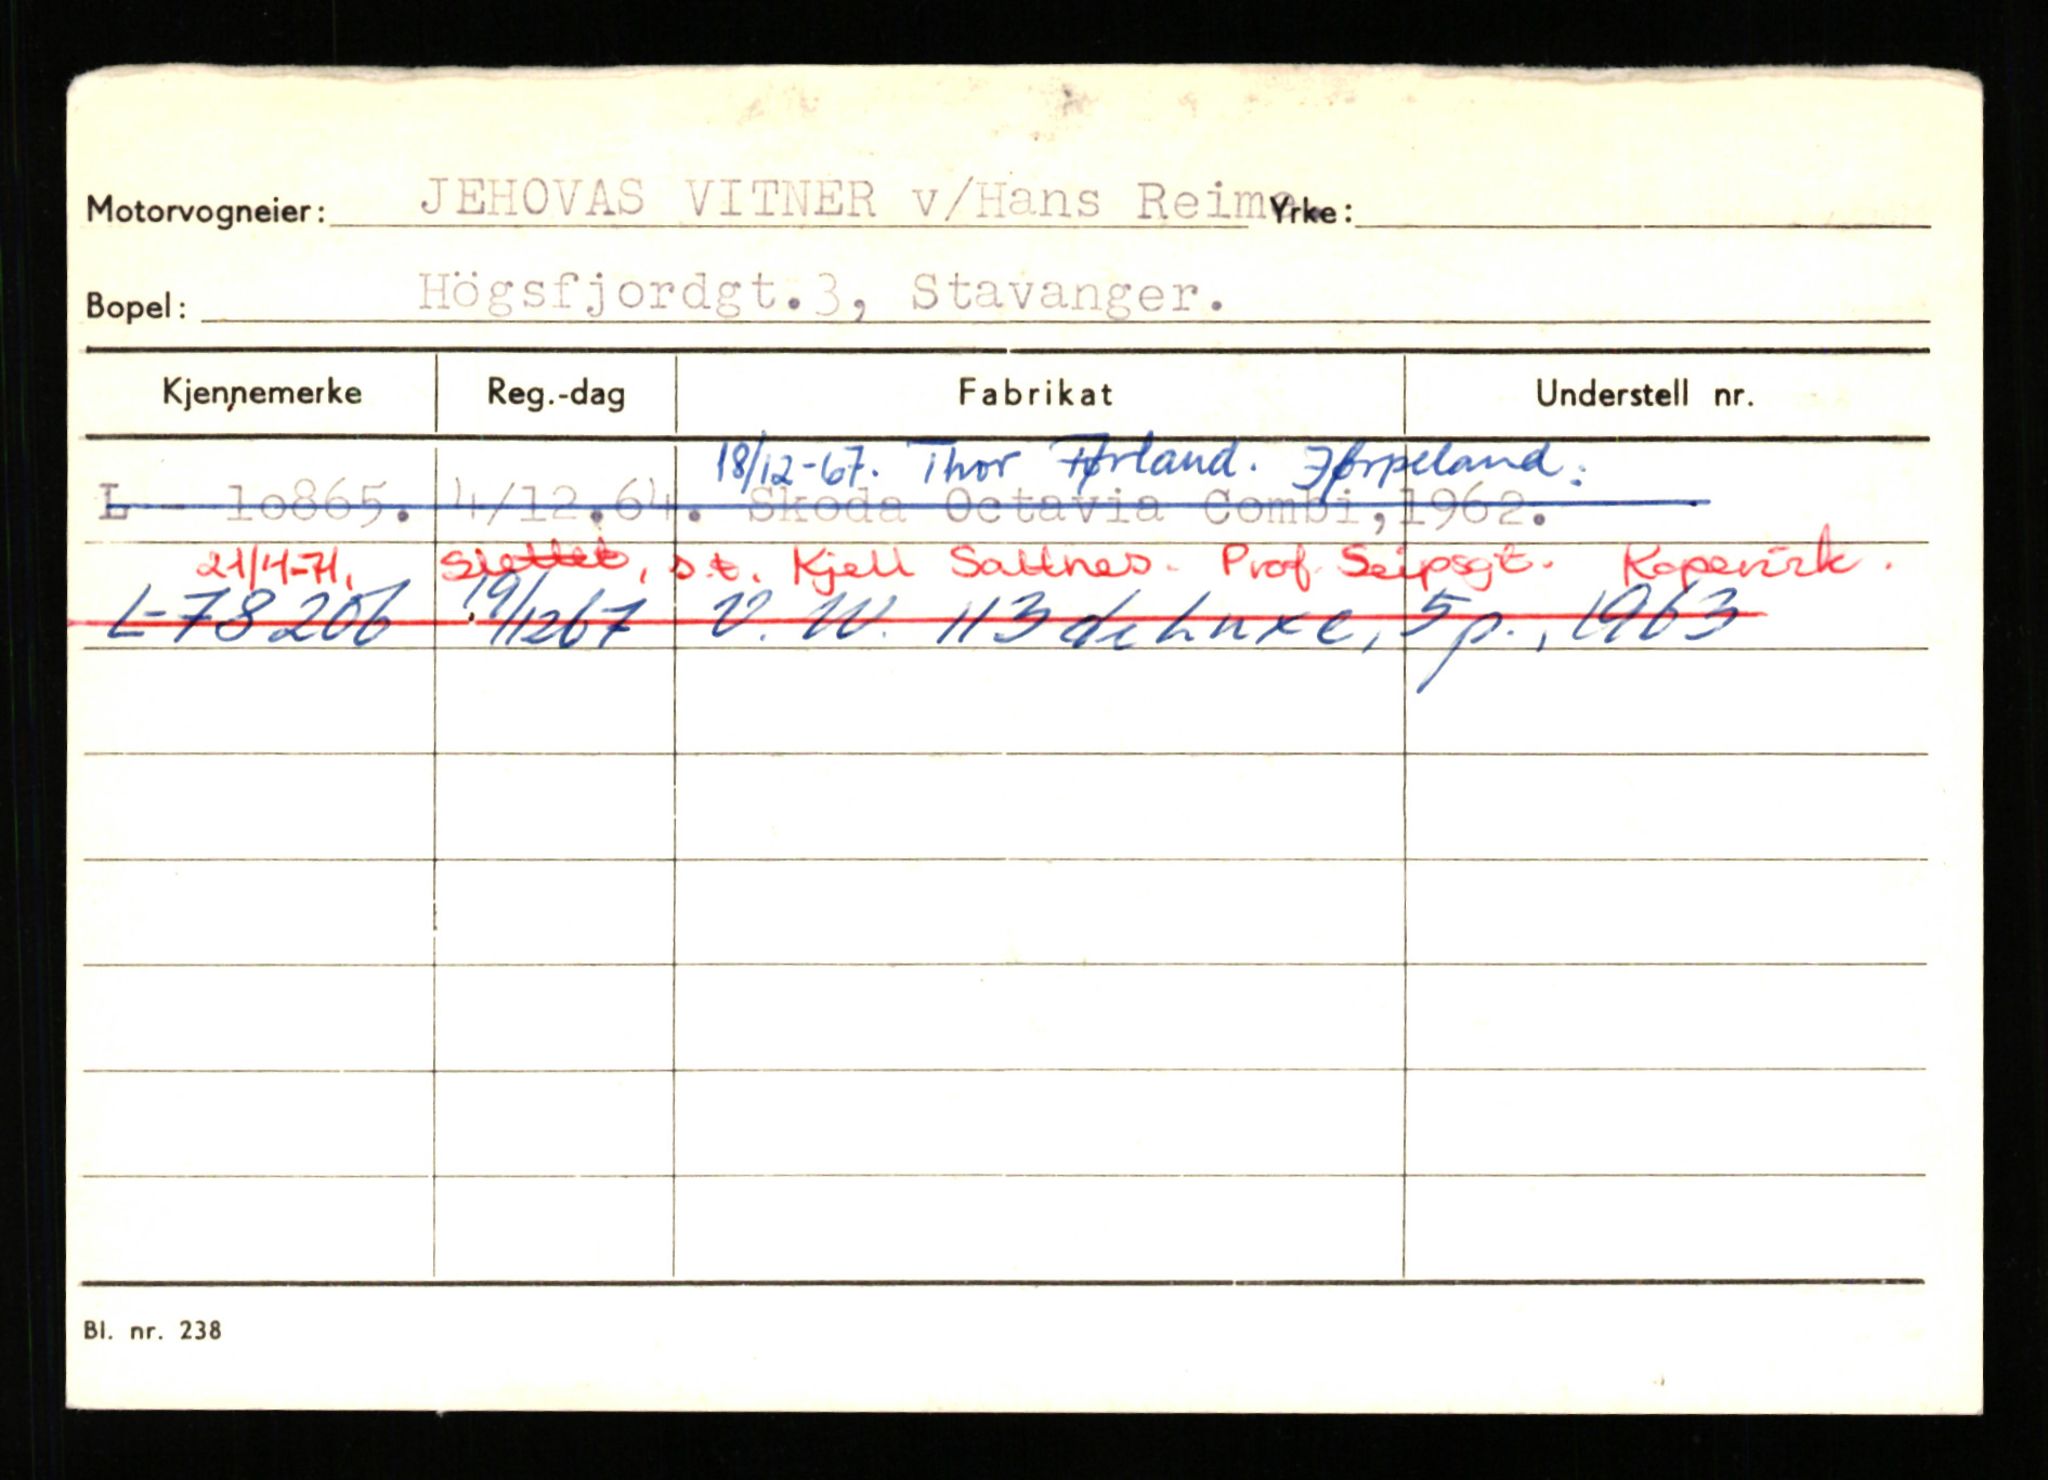 Motorvogneier: JEHOVAS VITNER v/Hans Reime. Yrke:
Bopel: Högsfjordgt.3, Stavanger.
Kjennemerke Reg.-dag Fabrikat Understell nr.
18/12-67. Thor Førland. Jørpeland.
L - 10865. 4/12.64. Skoda Octavia Combi, 1962.
21/4-71, Slettet, s.t. Kjell Saltnes. Prof. Seipsgt. Kopervik.
L-78206 19/1267 V.W. 113 de Luxe, 5 p., 1963
Bl. nr. 238